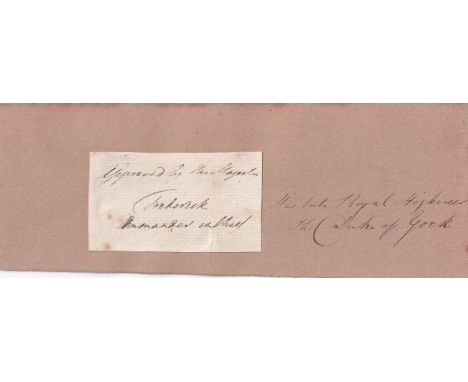 Approved by His Majesty
Frederick
Commander in Chief
His late Royal Highness
The Duke of York